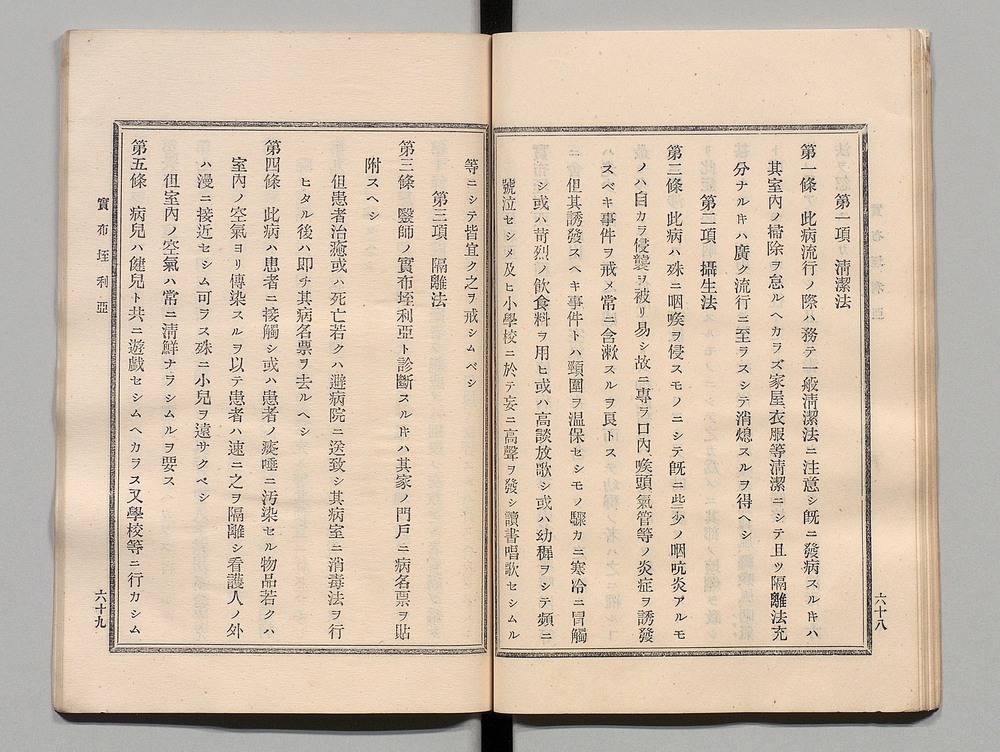 第一項 清潔法
第一條 此病流行ノ際ハ務テ一般清潔法ニ注意シ既ニ發病スルキハ
其室内ノ掃除ヲ怠ルヘカラズ家屋衣服等清潔ニシテ且ツ隔離法充
分ナルキハ廣ク流行ニ至ヲスシテ消熄スルヲ得ヘシ
第二項 攝生法
第二條 此病ハ殊ニ咽喉ヲ侵スモノニシテ既ニ些少ノ咽吭炎アルモ
ノハ自カラ侵襲ヲ被リ易シ故ニ專ヲ口内喉頭氣管等ノ炎症ヲ誘發
スベキ事件ヲ戒メ常ニ含漱スルヲ良トス
但其誘發スヘキ事件トハ頸圍ヲ温保セシモノ驟カニ寒冷ニ冒觸
シ或ハ苛烈ノ飲食料ヲ用ヒ或ハ高談放歌シ或ハ幼穉ヲシテ頻ニ
號泣セシメ及ヒ小學校ニ於テ妄ニ高聲ヲ發シ讀書唱歌セシムル
六十八
等ニシテ皆宜ク之ヲ戒シムベシ
第三項 隔離法
第三條 醫師ノ實布垤利亞ト診斷スルキハ其家ノ門戸ニ病名票ヲ貼
附スヘシ
但患者治癒或ハ死亡若クハ避病院ニ送致シ其病室ニ消毒法ヲ行
ヒタル後ハ即チ其病名票ヲ去ルヘシ
第四條 此病ハ患者ニ接觸シ或ハ患者ノ痰唾ニ汚染セル物品若クハ
室内ノ空氣ヨリ傳染スルヲ以テ患者ハ速ニ之ヲ隔離シ看護人ノ外
ハ漫ニ接近セシム可ラス殊ニ小兒ヲ遠サクベシ
但室内ノ空氣ハ常ニ清鮮ナラシムルヲ要ス
第五條 病兒ハ健兒ト共ニ遊戯セシムヘカラス又學校等ニ行カシム
實布垤利亞
六十九